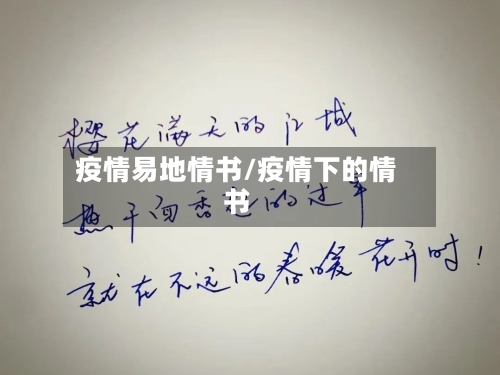 樱花满天的江城
疫情易地情书/疫情下的情
书
热干面香起的过早
就在不远的春暖花开时！